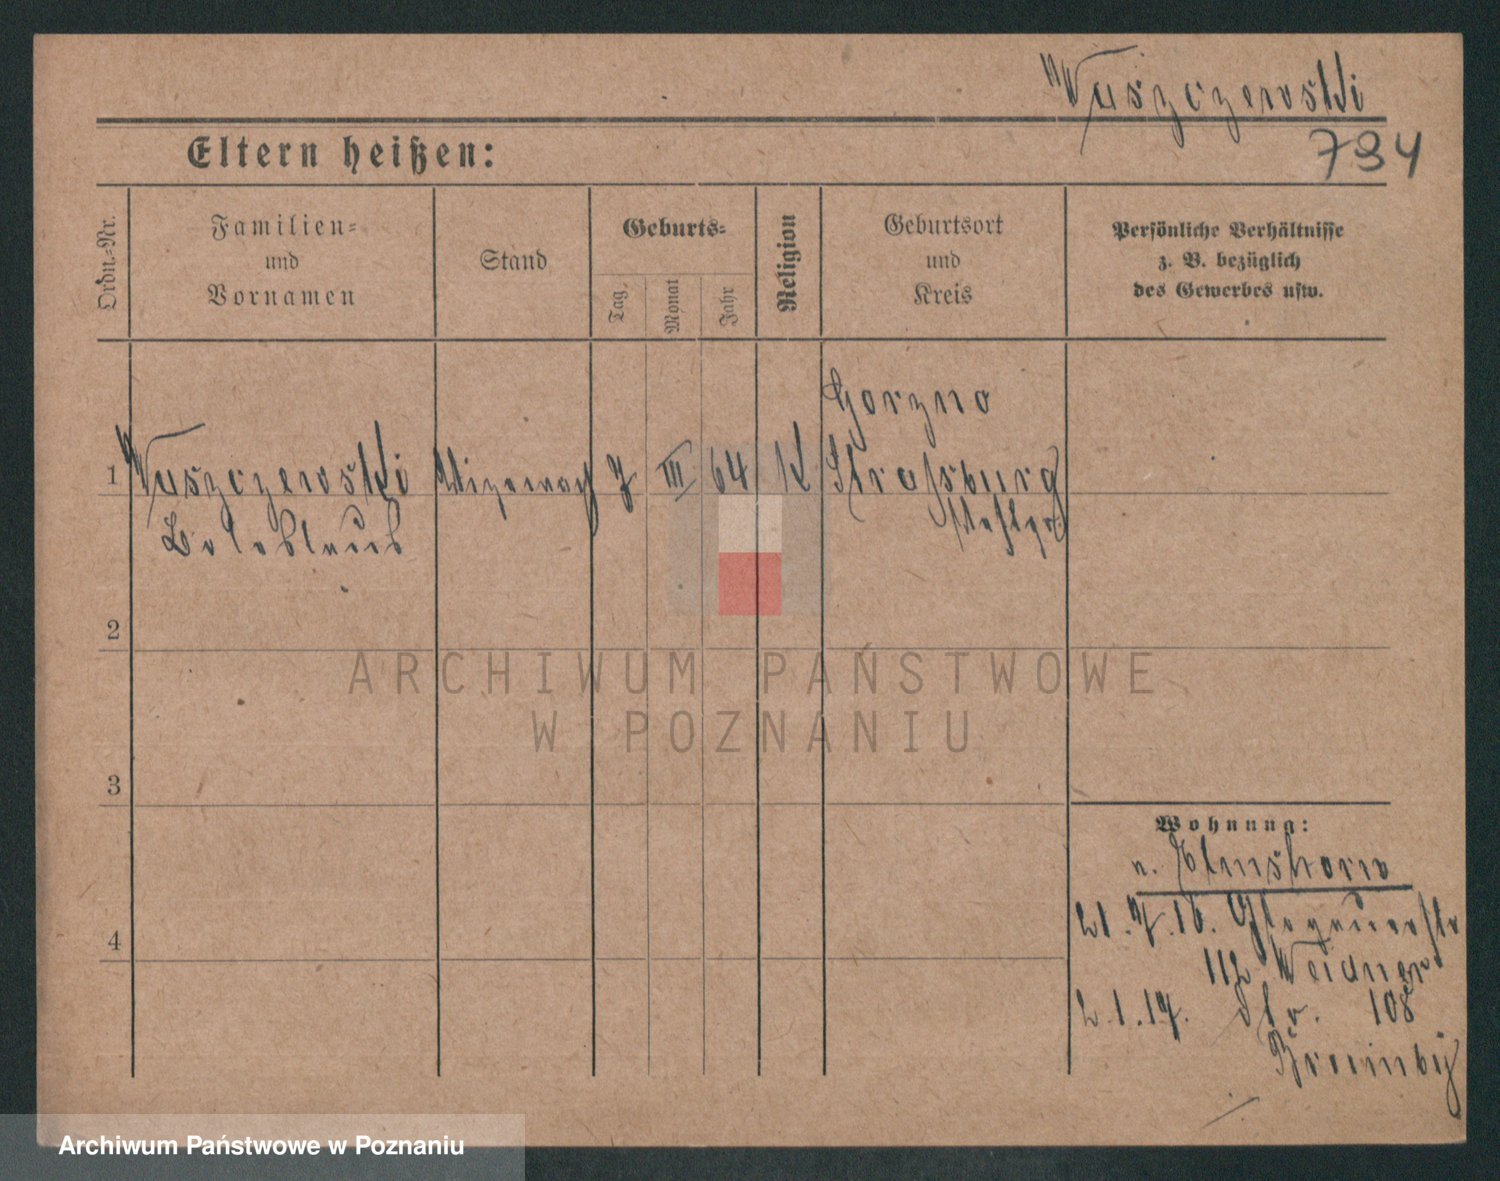 Waszczewski
794
Eltern heißen:
Ordn.-Nr.
Familien-
und
Vornamen
Stand
Geburts-
Tag
Monat
Jahr
Religion
Geburtsort
und
Kreis
Persönliche Verhältnisse
z. B. bezüglich
des Gewerbes usw.
Gorzno
1 Waszczewski 7 III 64 K Straßburg
Boleslaus Westpr
2
3
4
Wohnung:
n. Elmshorn
21. 7. 16. Glogauerstr
112
2. 1. 17. Str. 108
ARCHIWUM PAŃSTWOWE
W POZNANIU
Archiwum Państwowe w Poznaniu